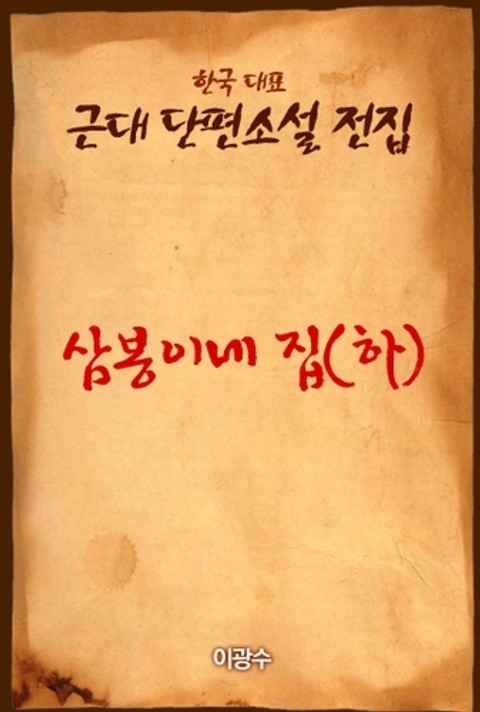 한국 대표
근대 단편소설 전집
삼봉이네 집(하)
이광수